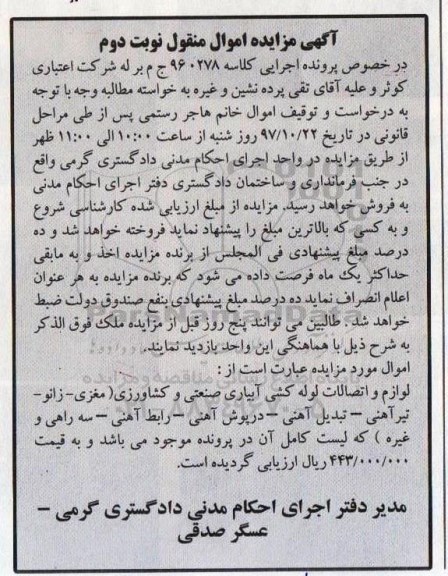 آگهی مزایده اموال منقول نوبت دوم
در خصوص پرونده اجرایی کلاسه ۹۶۰۲۷۸ ج م بر له شرکت اعتباری
کوثر و علیه آقای تقی پرده نشین و غیره به خواسته مطالبه وجه با توجه
به درخواست و توقیف اموال خانم هاجر رستمی پس از طی مراحل
قانونی در تاریخ ۹۷/۱۰/۲۲ روز شنبه از ساعت ۱۰:۰۰ الی ۱۱:۰۰ ظهر
از طریق مزایده در واحد اجرای احکام مدنی دادگستری گرمی واقع
در جنب فرمانداری و ساختمان دادگستری دفتر اجرای احکام مدنی
به فروش خواهد رسید. مزایده از مبلغ ارزیابی شده کارشناسی شروع
و به کسی که بالاترین مبلغ را پیشنهاد نماید فروخته خواهد شد و ده
درصد مبلغ پیشنهادی فی المجلس از برنده مزایده اخذ و به مابقی
حداکثر یک ماه فرصت داده می شود که برنده مزایده به هر عنوان
اعلام انصراف نماید ده درصد مبلغ پیشنهادی بنفع صندوق دولت ضبط
خواهد شد . طالبین می توانند پنج روز قبل از مزایده ملک فوق الذکر
به شرح ذیل با هماهنگی این واحد بازدید نمایند.
اموال مورد مزایده عبارت است از :
لوازم و اتصالات لوله کشی آبیاری صنعتی و کشاورزی( مغزی- زانو-
تیرآهنی – تبدیل آهنی – درپوش آهنی – رابط آهنی – سه راهی و
غیره ) که لیست کامل آن در پرونده موجود می باشد و به قیمت
۴۴۳/۰۰۰/۰۰۰ ریال ارزیابی گردیده است.
مدیر دفتر اجرای احکام مدنی دادگستری گرمی –
عسگر صدقی